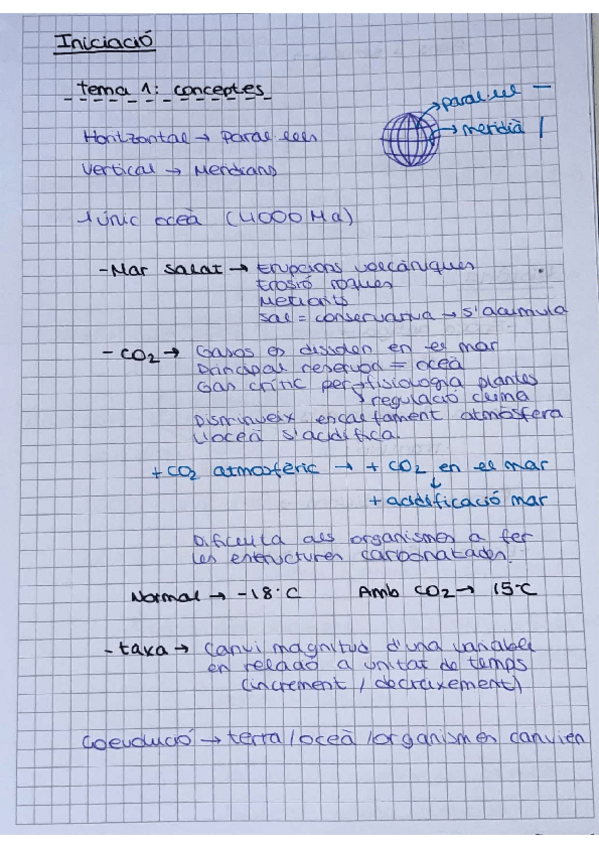 Iniciació
tema 1: conceptes
paral·lel —
→ meridià |
Horitzontal → Paral·lels
Vertical → Meridians
1 únic oceà (4000 Ma)
- Mar salat → Erupcions volcàniques
Erosió roques
Meteorits
Sal = conservativa → s'acumula
- CO2 → Gasos es disolen en el mar
Principal reservori = oceà
Gas crític per → fisiologia plantes
↘ regulació clima
Disminueix encalfament atmosfera
L'oceà s'acidifica.
+ CO2 atmosfèric → + CO2 en el mar
↓
+ acidificació mar
Dificulta als organismes a fer
les estructures carbonatades.
Normal → -18°C Amb CO2 → 15°C
- taxa → Canvi magnitud d'una variable
en relació a unitat de temps
(increment / decreixement)
Coevolució → terra / oceà / organismes canvien